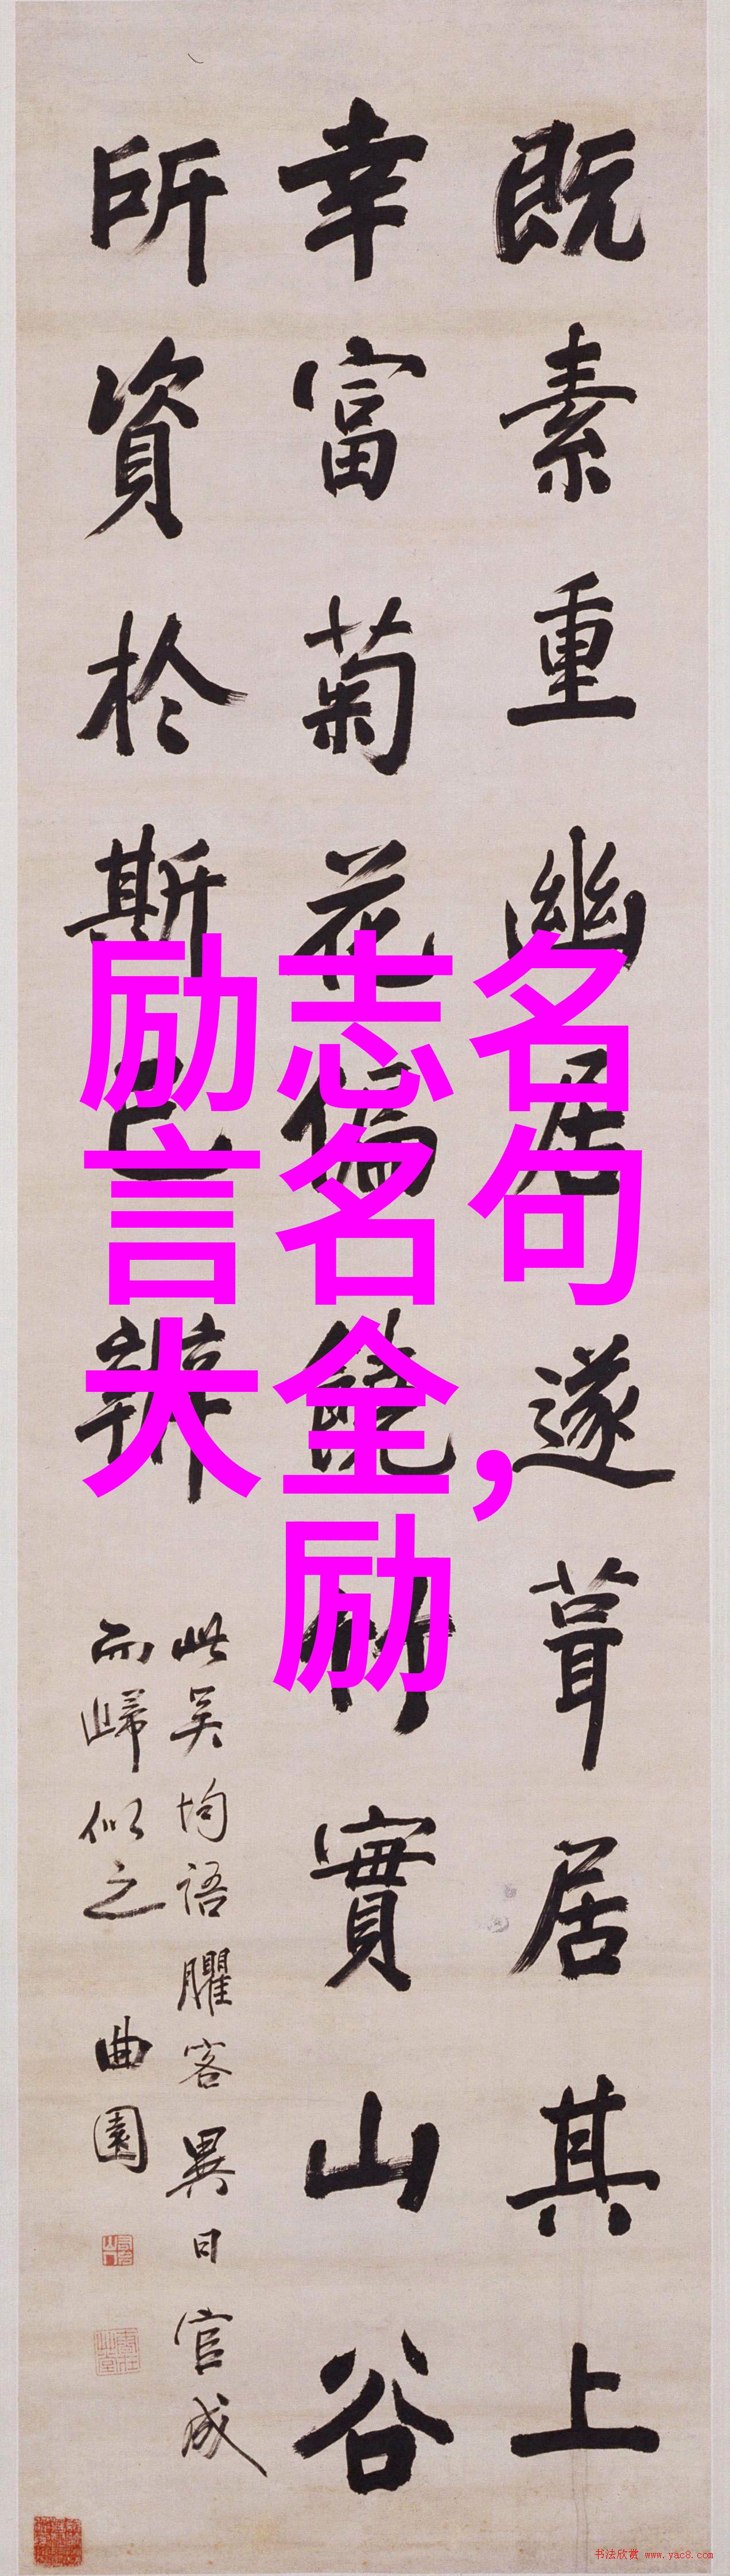 既素重幽居遂葺居其上
幸富菊花偏饒竹實山谷
所資於斯已辦
此吴均語臞客異日官成
而歸似之 曲園
励志名
言名句
大全,
励
书法欣赏 www.yac8.com